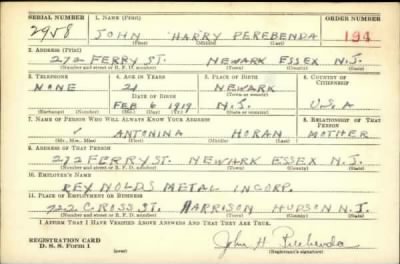 SERIAL NUMBER 1. NAME (Print) ORDER NUMBER
2958 JOHN HARRY PEREBENDA 194
(First) (Middle) (Last)
2. ADDRESS (Print)
272 FERRY ST. NEWARK ESSEX N.J.
(Number and street or R. F. D. number) (Town) (County) (State)
3. TELEPHONE 4. AGE IN YEARS 5. PLACE OF BIRTH 6. COUNTRY OF CITIZENSHIP
NONE 21 NEWARK
DATE OF BIRTH (Town or county)
FEB 6 1919 N.J. U.S.A
(Exchange) (Number) (Mo.) (Day) (Yr.) (State or country)
7. NAME OF PERSON WHO WILL ALWAYS KNOW YOUR ADDRESS 8. RELATIONSHIP OF THAT PERSON
ANTONINA HORAN MOTHER
(Mr., Mrs., Miss) (First) (Middle) (Last)
9. ADDRESS OF THAT PERSON
272 FERRY ST. NEWARK ESSEX N.J.
(Number and street or R. F. D. number) (Town) (County) (State)
10. EMPLOYER'S NAME
REYNOLDS METAL INCORP.
11. PLACE OF EMPLOYMENT OR BUSINESS
722 CROSS ST. HARRISON HUDSON N.J.
(Number and street or R. F. D. number) (Town) (County) (State)
I AFFIRM THAT I HAVE VERIFIED ABOVE ANSWERS AND THAT THEY ARE TRUE.
REGISTRATION CARD
D. S. S. Form 1 (over) John H. Perebenda
(Registrant's signature)